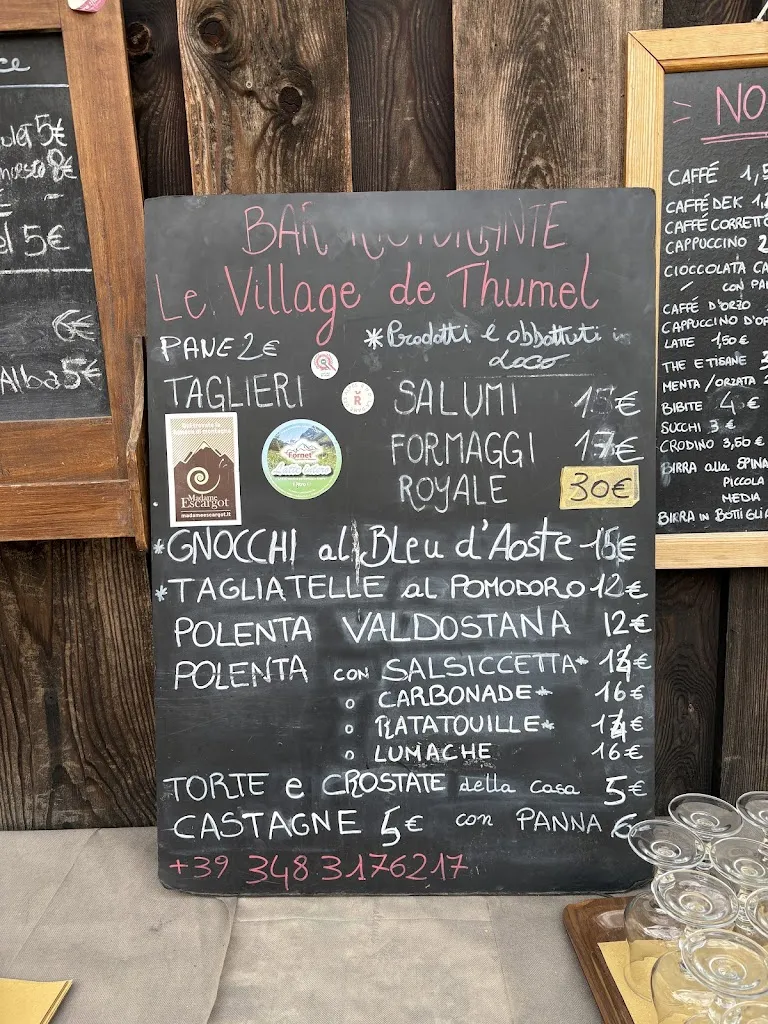 5€
8€
5€
6€
Alba 5€
BAR RISTORANTE
Le Village de Thumel
PANE 2€
*Prodotti e abbattuti in
loco
TAGLIERI
SALUMI 15€
FORMAGGI 17€
ROYALE 30€
Madame
Escargot
madameescargot.it
Fornet
*GNOCCHI al Bleu d'Aoste 15€
*TAGLIATELLE al POMODORO 12€
POLENTA VALDOSTANA 12€
POLENTA CON SALSICCETTA* 14€
o CARBONADE* 16€
o RATATOUILLE* 14€
o LUMACHE 16€
TORTE e CROSTATE della casa 5€
CASTAGNE 5€ con PANNA 6
+39 348 3176217
NO
CAFFÉ 1,5
CAFFÉ DEK 1,
CAFFÉ CORRETTO
CAPPUCCINO 2
CIOCCOLATA CA
CON PA
CAFFÉ D'ORZO
CAPPUCCINO D'OR
LATTE 1,50 €
THE E TISANE 3
MENTA / ORZATA 2
BIBITE 4 €
SUCCHI 3 €
CRODINO 3,50 €
BIRRA alla SPINA
PICCOLA
MEDIA
BIRRA IN BOTTIGLIA